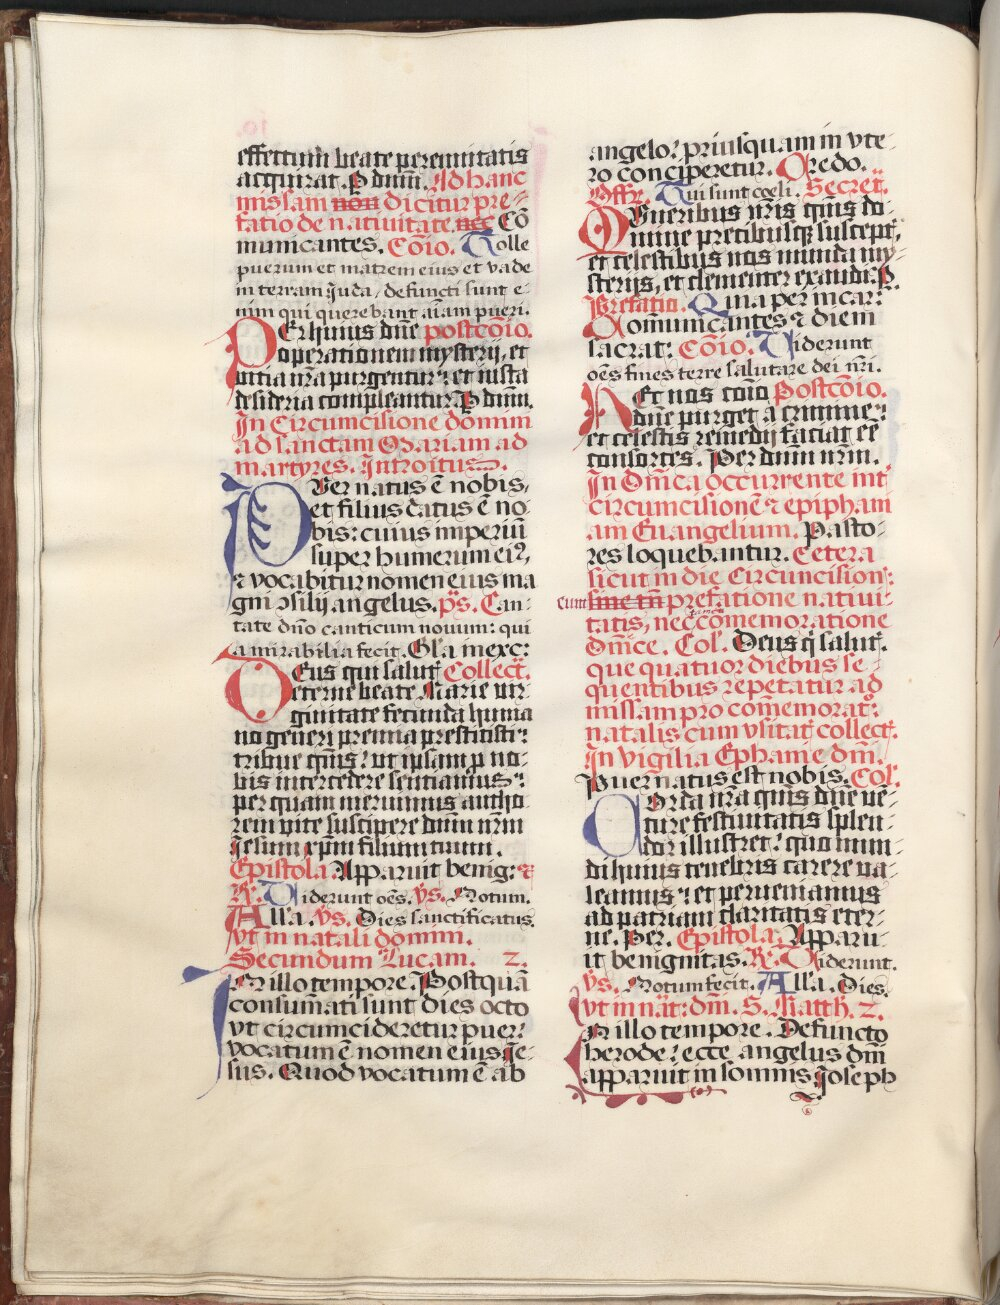 effectum beate perennitatis
acquirat. P dn̄m. Ad hanc
missam non dicitur pre-
fatio de natiuitate nec Cō
municantes. Cōio. Tolle
puerum et matrem eius et vade
in terram Juda, defuncti sunt e-
nim qui querebant aīam pueri.
PEr huius dn̄e postcōio.
operationem mysterij, et
uitia nr̄a purgentur: et iusta
desideria compleantur. P dn̄m.
In Circumcisione domini
ad sanctam Mariam ad
martyres. Introitus.
PVer natus ē nobis,
et filius datus ē no
bis: cuius imperiū
super humerum ei9,
et vocabitur nomen eius ma
gni ɔsilij angelus. p̄s. Can-
tate dn̄o canticum nouum: qui
a mirabilia fecit. Gl̄a in exc:
DEus qui salut̄ Collect̄.
eterne beate Marie vir
ginitate fecunda huma
no generi premia prestitisti:
tribue qm̄s: ut ipsam p no-
bis intercedere sentiamus:
per quam meruimus autho
rem uite suscipere dn̄m nr̄m
Jesum xpm̄ filium tuum.
Epistola. Apparuit benig: et
R̄. Viderunt oēs. v̄s. Notum.
All'a. v̄s. Dies sanctificatus.
vt in natali domini.
Secundum Lucam. 2.
IN illo tempore. Postquā
consum̄ati sunt dies octo
vt circumcideretur puer:
vocatum ē nomen eius Je-
sus. Quod vocatum ē ab
angelo: priusquam in vte-
ro conciperetur. Credo.
Offr̄. Tui sunt coeli. Secret̄.
MVneribus nr̄is qm̄s do-
mine precibusq3 suscept̄,
et celestibus nos munda my-
sterijs, et clementer exaudi: P.
Prefatio. Quia per incar:
Comunicantes et diem
sacrat: Cōio. Viderunt
oēs fines terre salutare dei nr̄i.
HEt nos cōio Postcōio.
dn̄e purget a crimine:
et celestis remedij faciat eē
consortes. Per dn̄m nr̄m.
In Dn̄ica occurrente int̄
circumcisionē et epiphani
am Euangelium. Pasto-
res loquebantur. Cetera
sicut in die Circuncision:
cum sine tn̄ prefatione natiui-
tatis, nec tamen cōmemoratione
dn̄ice. Col'. Deus q̄ salut̄.
que quatuor diebus se-
quentibus repetatur ad
missam pro cōmemorat:
natalis cum vsitat̄ collect̄.
In vigilia Ephanie dn̄i.
Puer natus est nobis. Col'.
COrda nr̄a qm̄s dn̄e ve-
ture festiuitatis splen-
dor illustret: quo mun-
di huius tenebris carere va-
leamus: et perueniamus
ad patriam claritatis eter-
ne. Per. Epistola. Apparu-
it benignitas. R̄. Viderunt.
v̄s. Notum fecit. All'a. Dies.
vt in nat̄: dn̄i. S. Matth. 2.
IN illo tempore. Defuncto
herode: ecce angelus dn̄i
apparuit in somnis Joseph